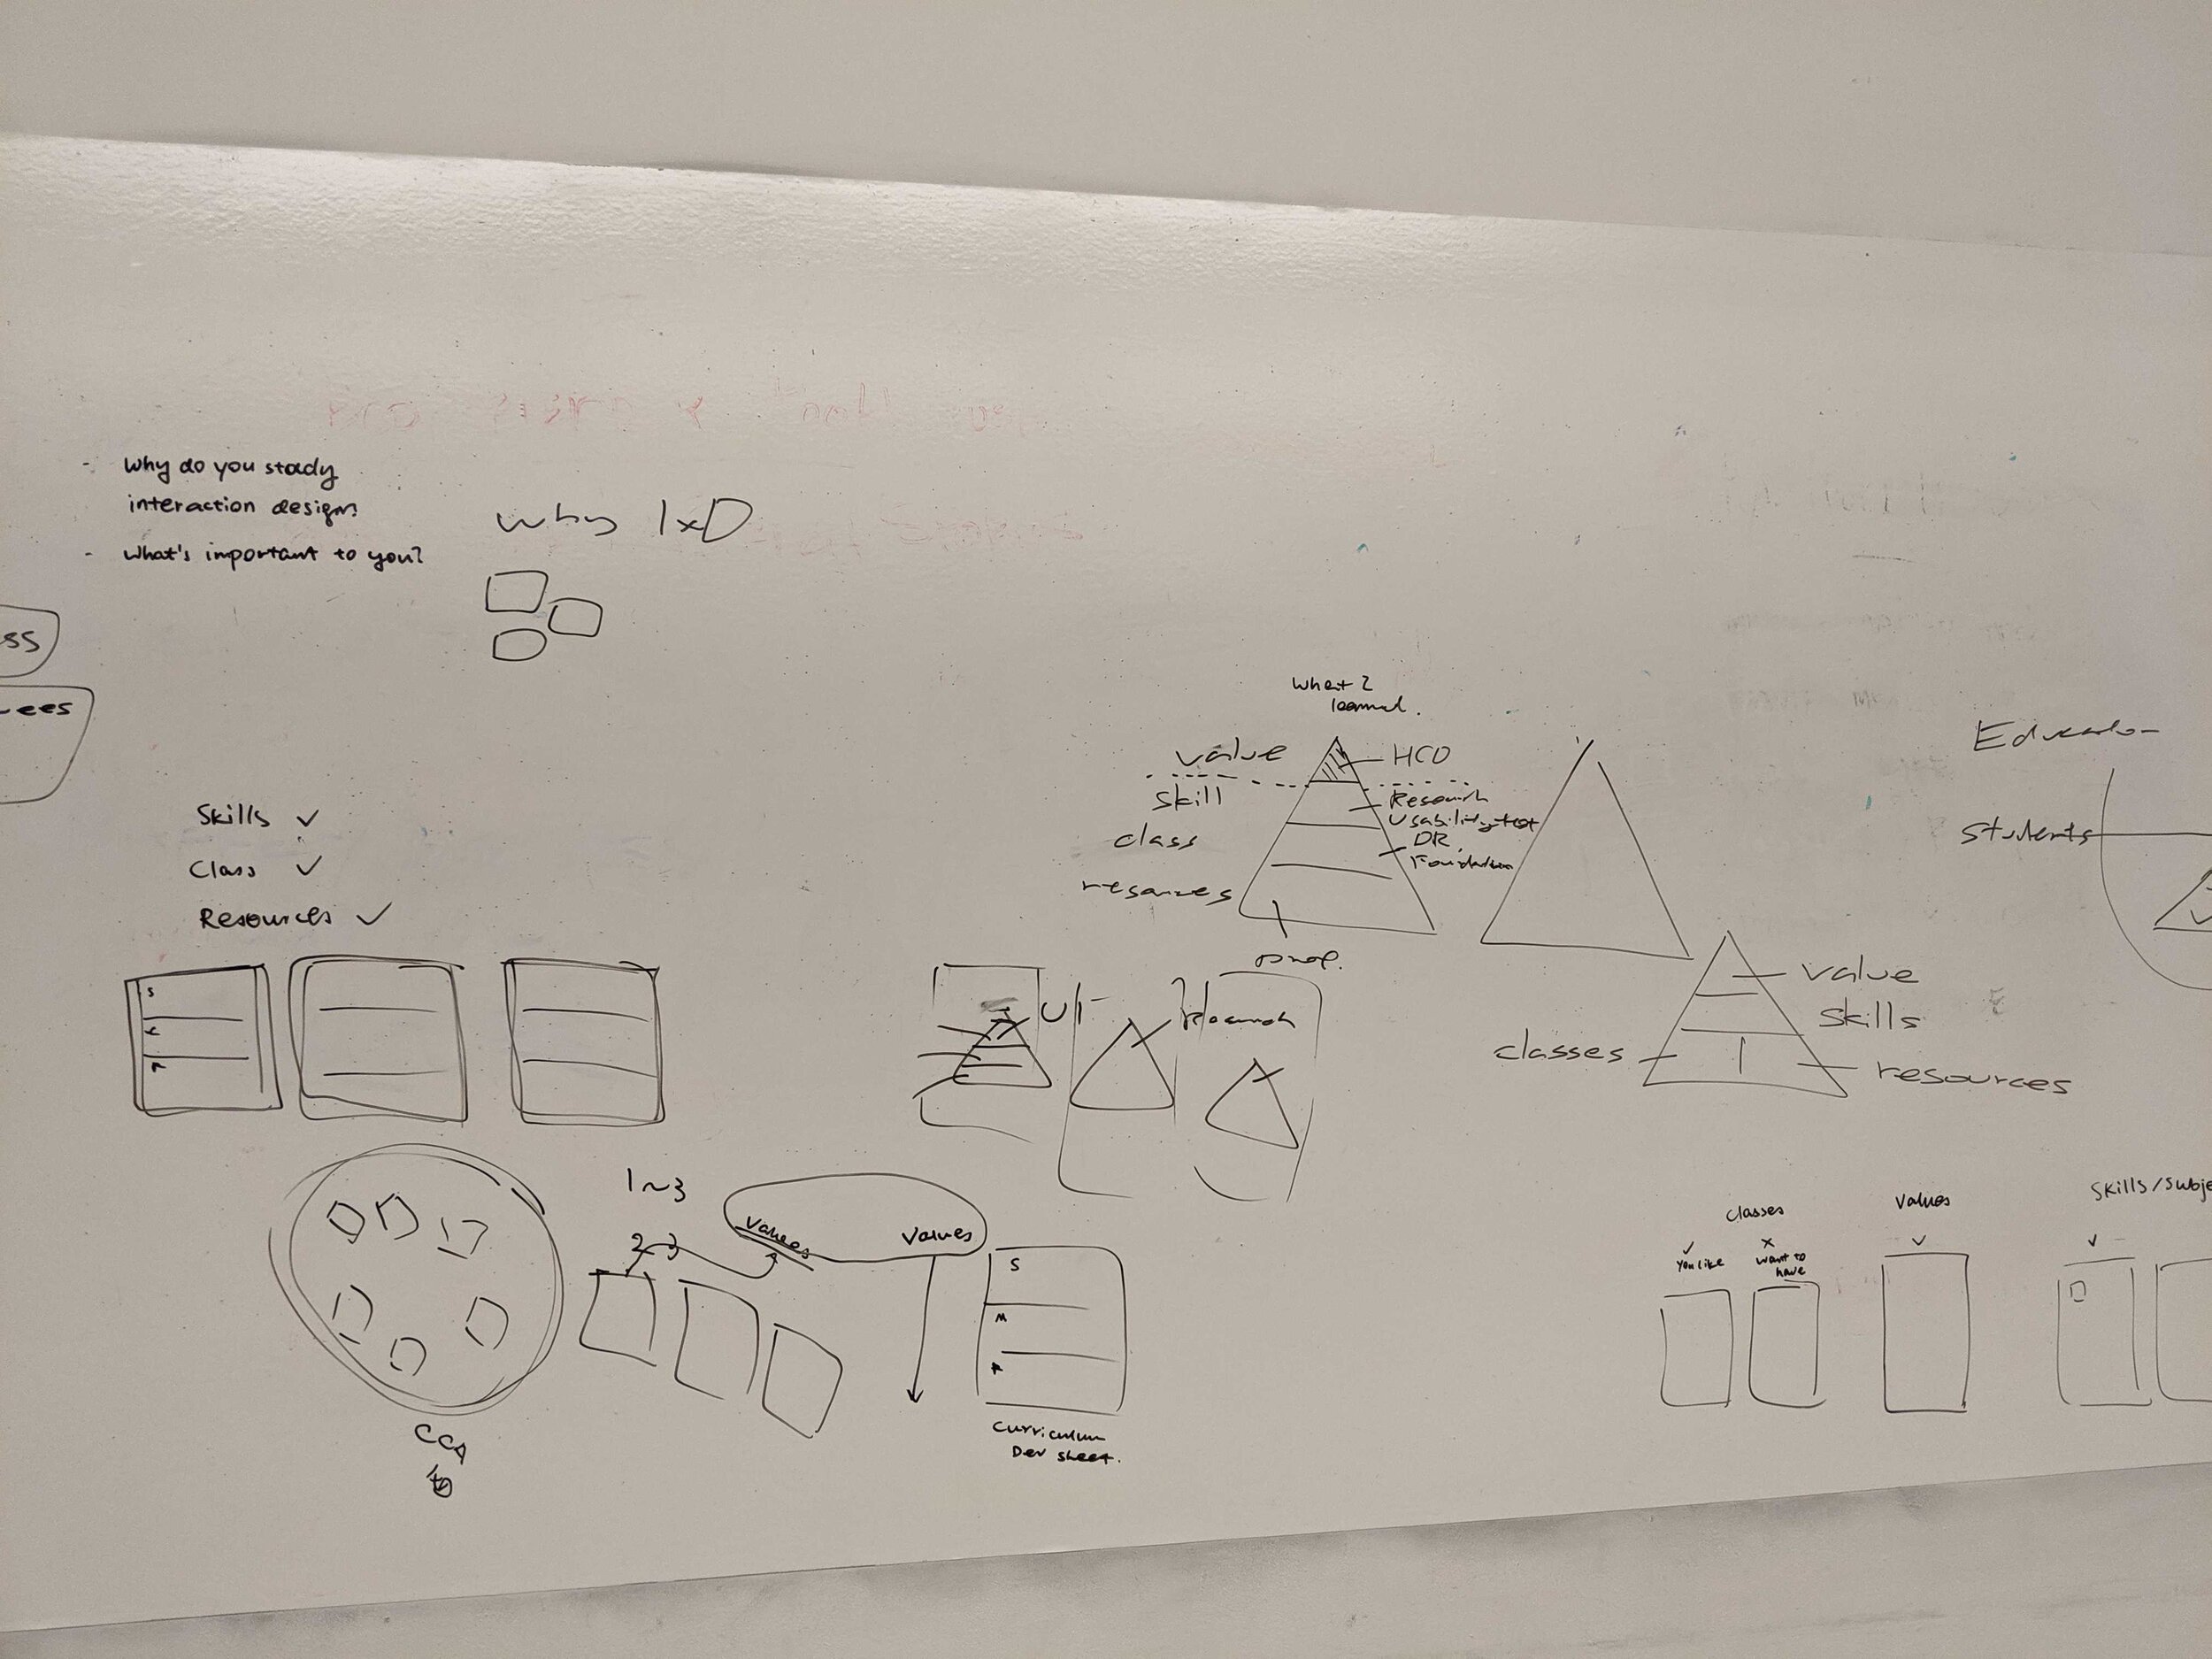 - Why do you stady
interaction design?
- What's important to you?
Why IxD
ss
Skills ✓
Class ✓
Resources ✓
S
C
r
What I
learned.
value
HCD
skill
Research
Usability test
class
DR,
Foundation
resources
prof.
UT
Research
value
skills
classes
resources
Education
students
1~3
2~3
values
values
S
M
R
Curriculum
Dev sheet.
CCA
classes
✓
you like
×
want to
have
values
✓
Skills/Subje
✓